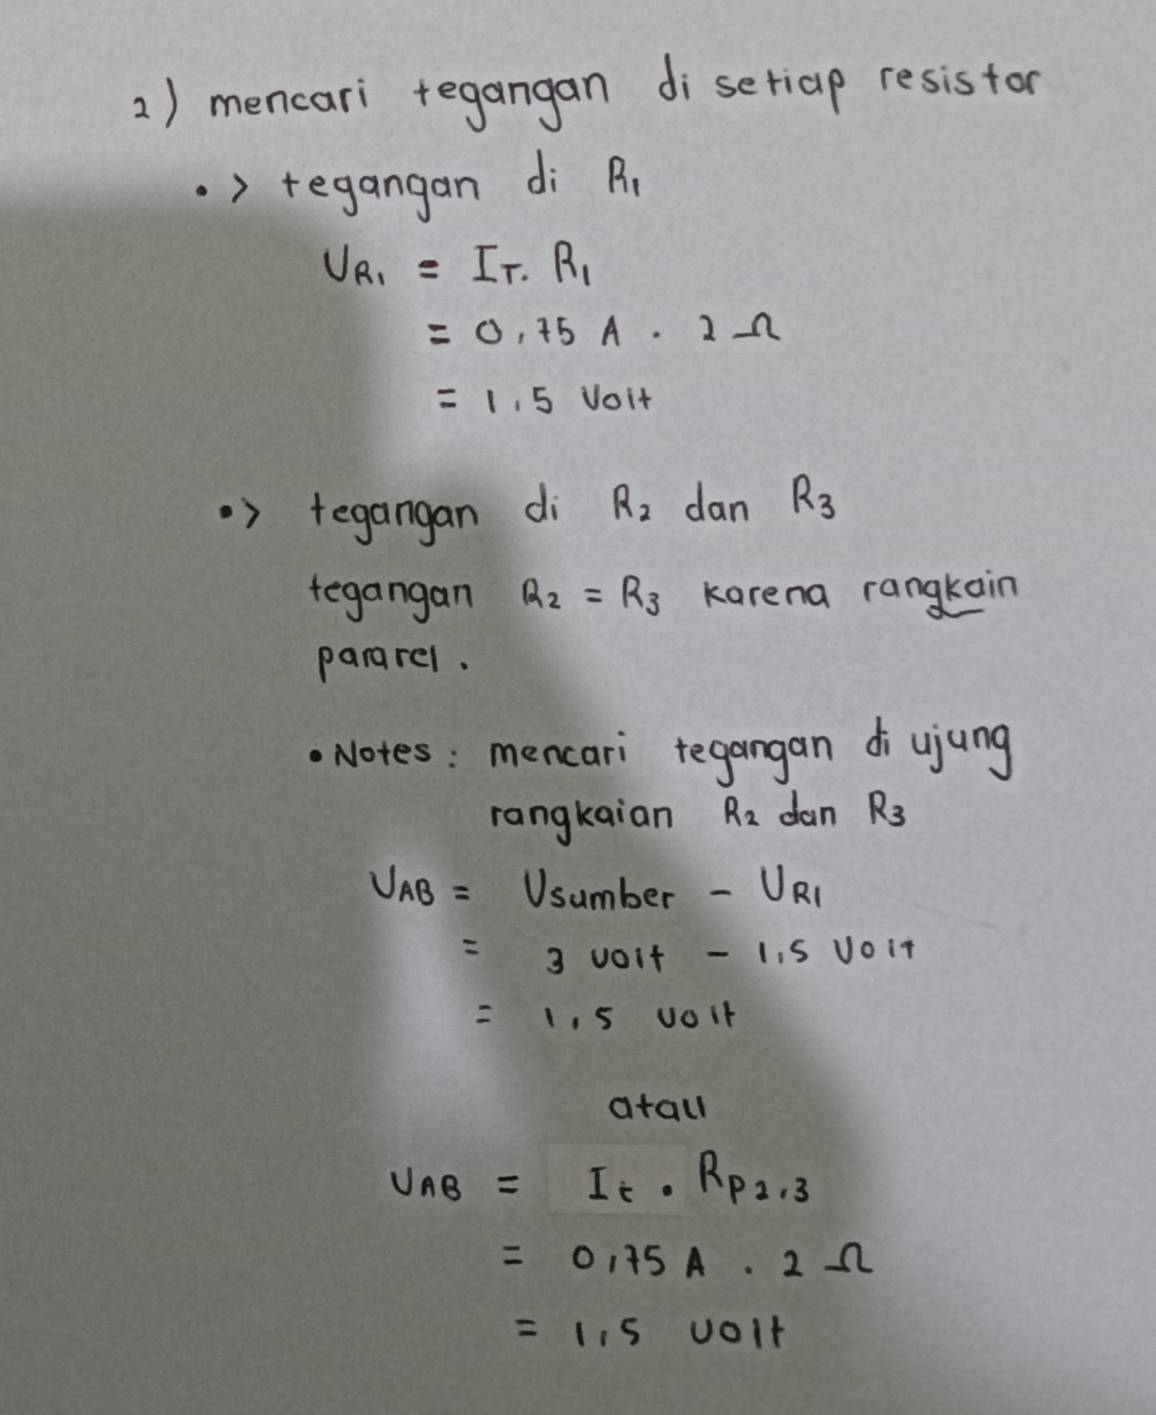 2) mencari tegangan di setiap resistor
•> tegangan di R₁
VR₁ = IT. R₁
= 0,75 A . 2 Ω
= 1,5 Volt
•> tegangan di R₂ dan R₃
tegangan R₂ = R₃ karena rangkain
pararel.
• Notes : mencari tegangan di ujung
rangkaian R₂ dan R₃
VAB = Vsumber - VR1
= 3 volt - 1,5 Volt
= 1,5 volt
atau
VAB = It . Rp2,3
= 0,75 A . 2 Ω
= 1,5 volt